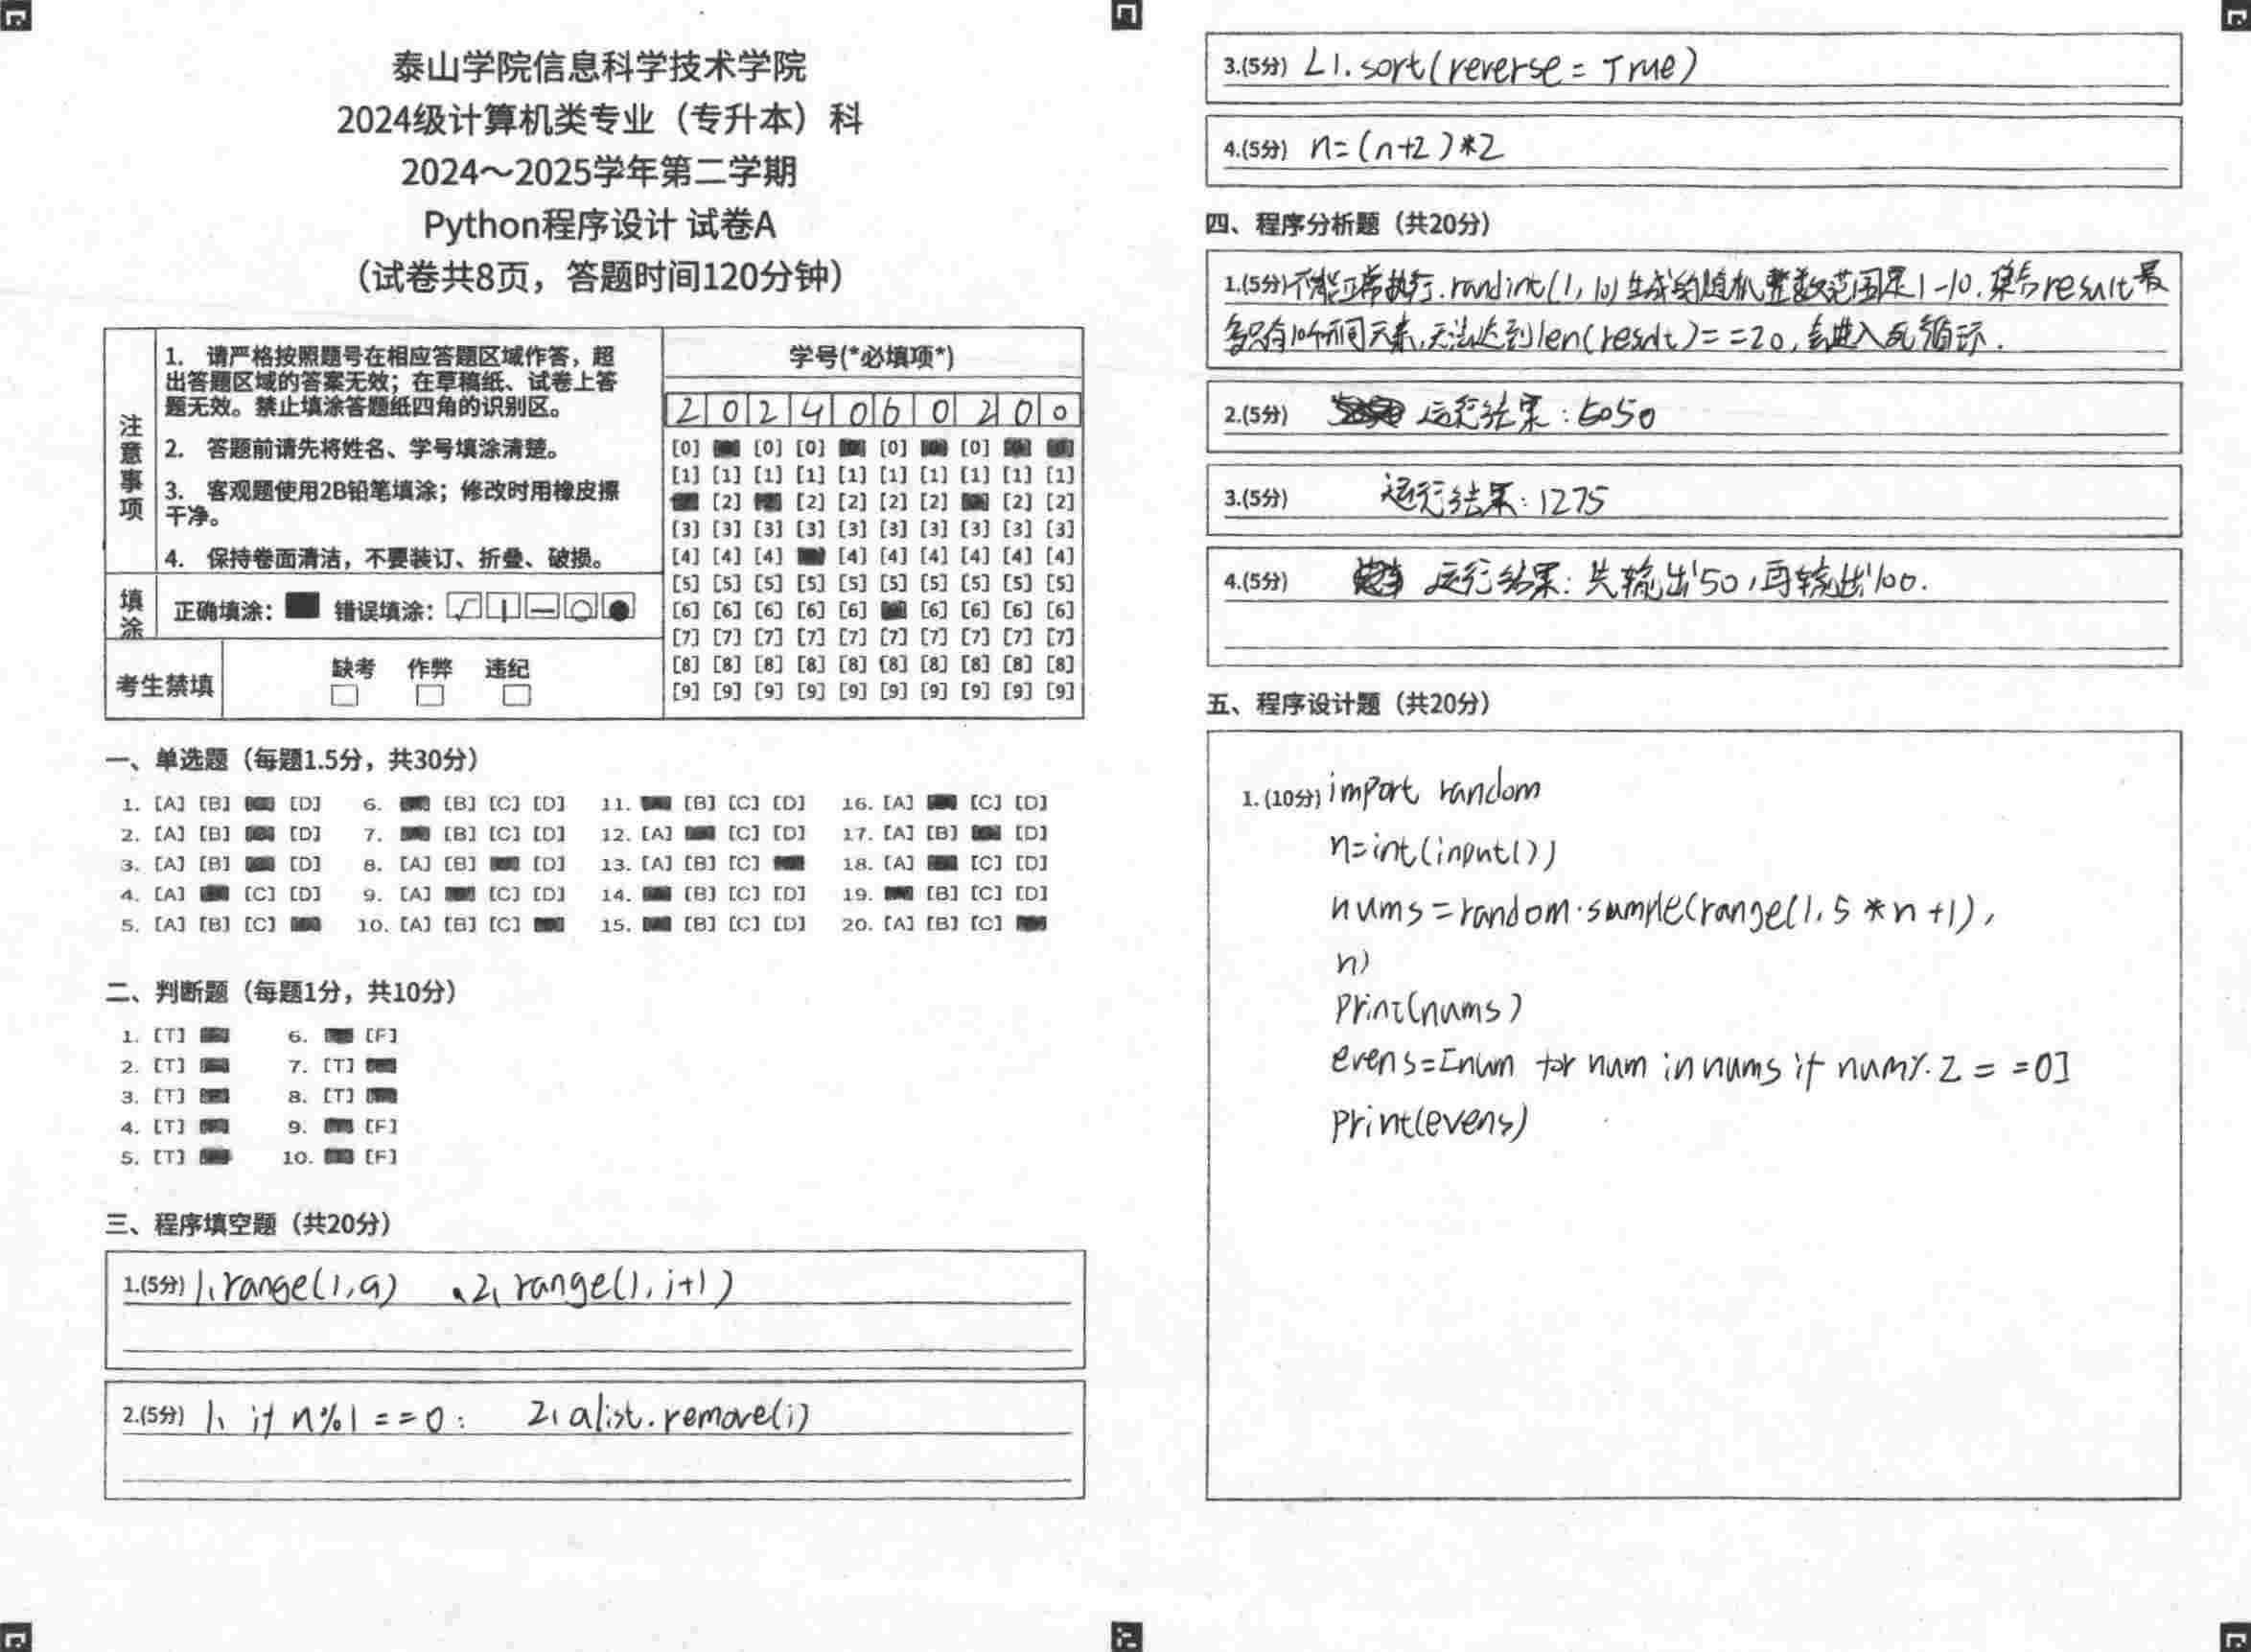 泰山学院信息科学技术学院
2024级计算机类专业（专升本）科
2024～2025学年第二学期
Python程序设计 试卷A
（试卷共8页，答题时间120分钟）
注意事项
1. 请严格按照题号在相应答题区域作答，超
出答题区域的答案无效；在草稿纸、试卷上答
题无效。禁止填涂答题纸四角的识别区。
2. 答题前请先将姓名、学号填涂清楚。
3. 客观题使用2B铅笔填涂；修改时用橡皮擦
干净。
4. 保持卷面清洁，不要装订、折叠、破损。
填涂
正确填涂： 错误填涂：
考生禁填
缺考 作弊 违纪
学号(*必填项*)
2 0 2 4 0 6 0 2 0 0
[0] [0] [0] [0] [0]
[1] [1] [1] [1] [1] [1] [1] [1] [1] [1]
[2] [2] [2] [2] [2] [2] [2]
[3] [3] [3] [3] [3] [3] [3] [3] [3] [3]
[4] [4] [4] [4] [4] [4] [4] [4] [4]
[5] [5] [5] [5] [5] [5] [5] [5] [5] [5]
[6] [6] [6] [6] [6] [6] [6] [6] [6]
[7] [7] [7] [7] [7] [7] [7] [7] [7] [7]
[8] [8] [8] [8] [8] [8] [8] [8] [8] [8]
[9] [9] [9] [9] [9] [9] [9] [9] [9] [9]
一、单选题（每题1.5分，共30分）
1. [A] [B] [D] 6. [B] [C] [D] 11. [B] [C] [D] 16. [A] [C] [D]
2. [A] [B] [D] 7. [B] [C] [D] 12. [A] [C] [D] 17. [A] [B] [D]
3. [A] [B] [D] 8. [A] [B] [D] 13. [A] [B] [C] 18. [A] [C] [D]
4. [A] [C] [D] 9. [A] [C] [D] 14. [B] [C] [D] 19. [B] [C] [D]
5. [A] [B] [C] 10. [A] [B] [C] 15. [B] [C] [D] 20. [A] [B] [C]
二、判断题（每题1分，共10分）
1. [T] 6. [F]
2. [T] 7. [T]
3. [T] 8. [T]
4. [T] 9. [F]
5. [T] 10. [F]
三、程序填空题（共20分）
1.(5分) 1、range(1,a) 2、range(1,i+1)
2.(5分) 1、if n%1==0: 2、alist.remove(i)
3.(5分) L1.sort(reverse=True)
4.(5分) n=(n+2)*2
四、程序分析题（共20分）
1.(5分)不能正常执行.randint(1,10)生成的随机整数范围是1-10.集合result最
多只有10个不同元素,无法达到len(result)==20,会进入死循环.
2.(5分) 运行结果:5050
3.(5分) 运行结果:1275
4.(5分) 运行结果:先输出'50,再输出'100.
五、程序设计题（共20分）
1.(10分) import random
n=int(input())
nums=random.sample(range(1,5*n+1),
n)
print(nums)
evens=[num for num in nums if num%2==0]
print(evens)